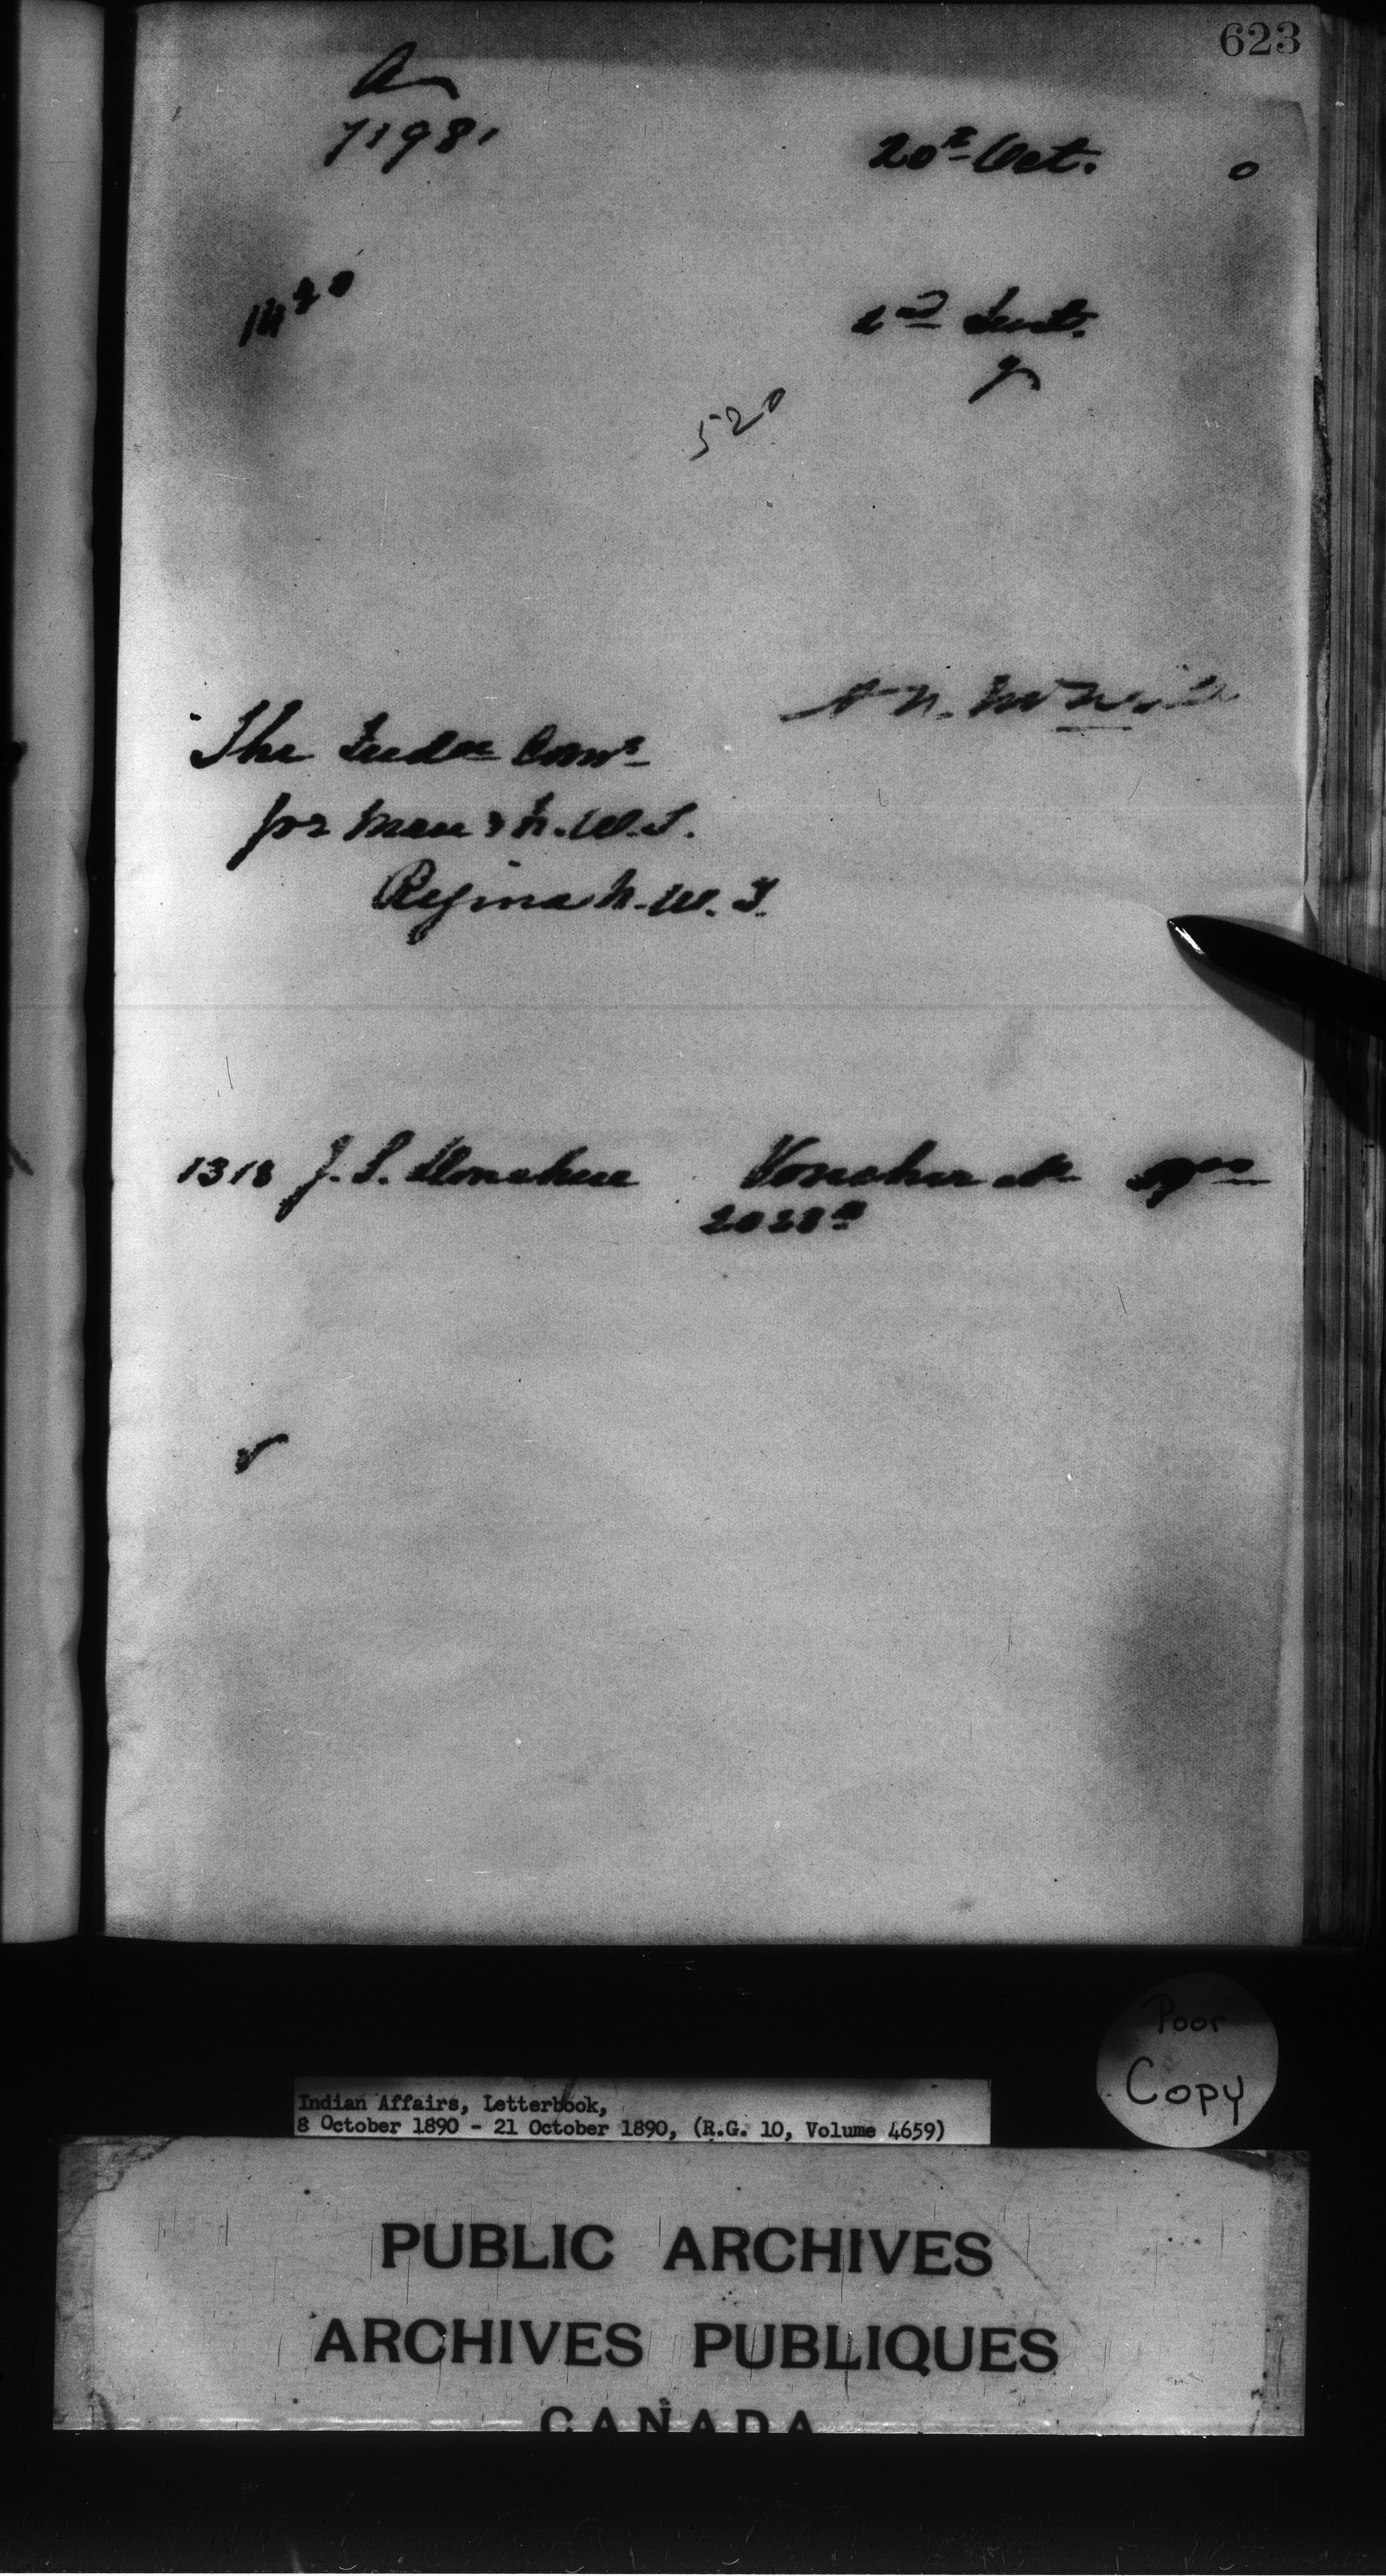 623
A
7198,
20th Oct. 0
1420
2nd Inst.
520
A. N. McNeill
The Indn Comr
for Man & N.W.T.
Regina N.W.T.
1318 J. S. Donahue Voucher
2028
Poor
Copy
Indian Affairs, Letterbook,
8 October 1890 - 21 October 1890, (R.G. 10, Volume 4659)
PUBLIC ARCHIVES
ARCHIVES PUBLIQUES
CANADA